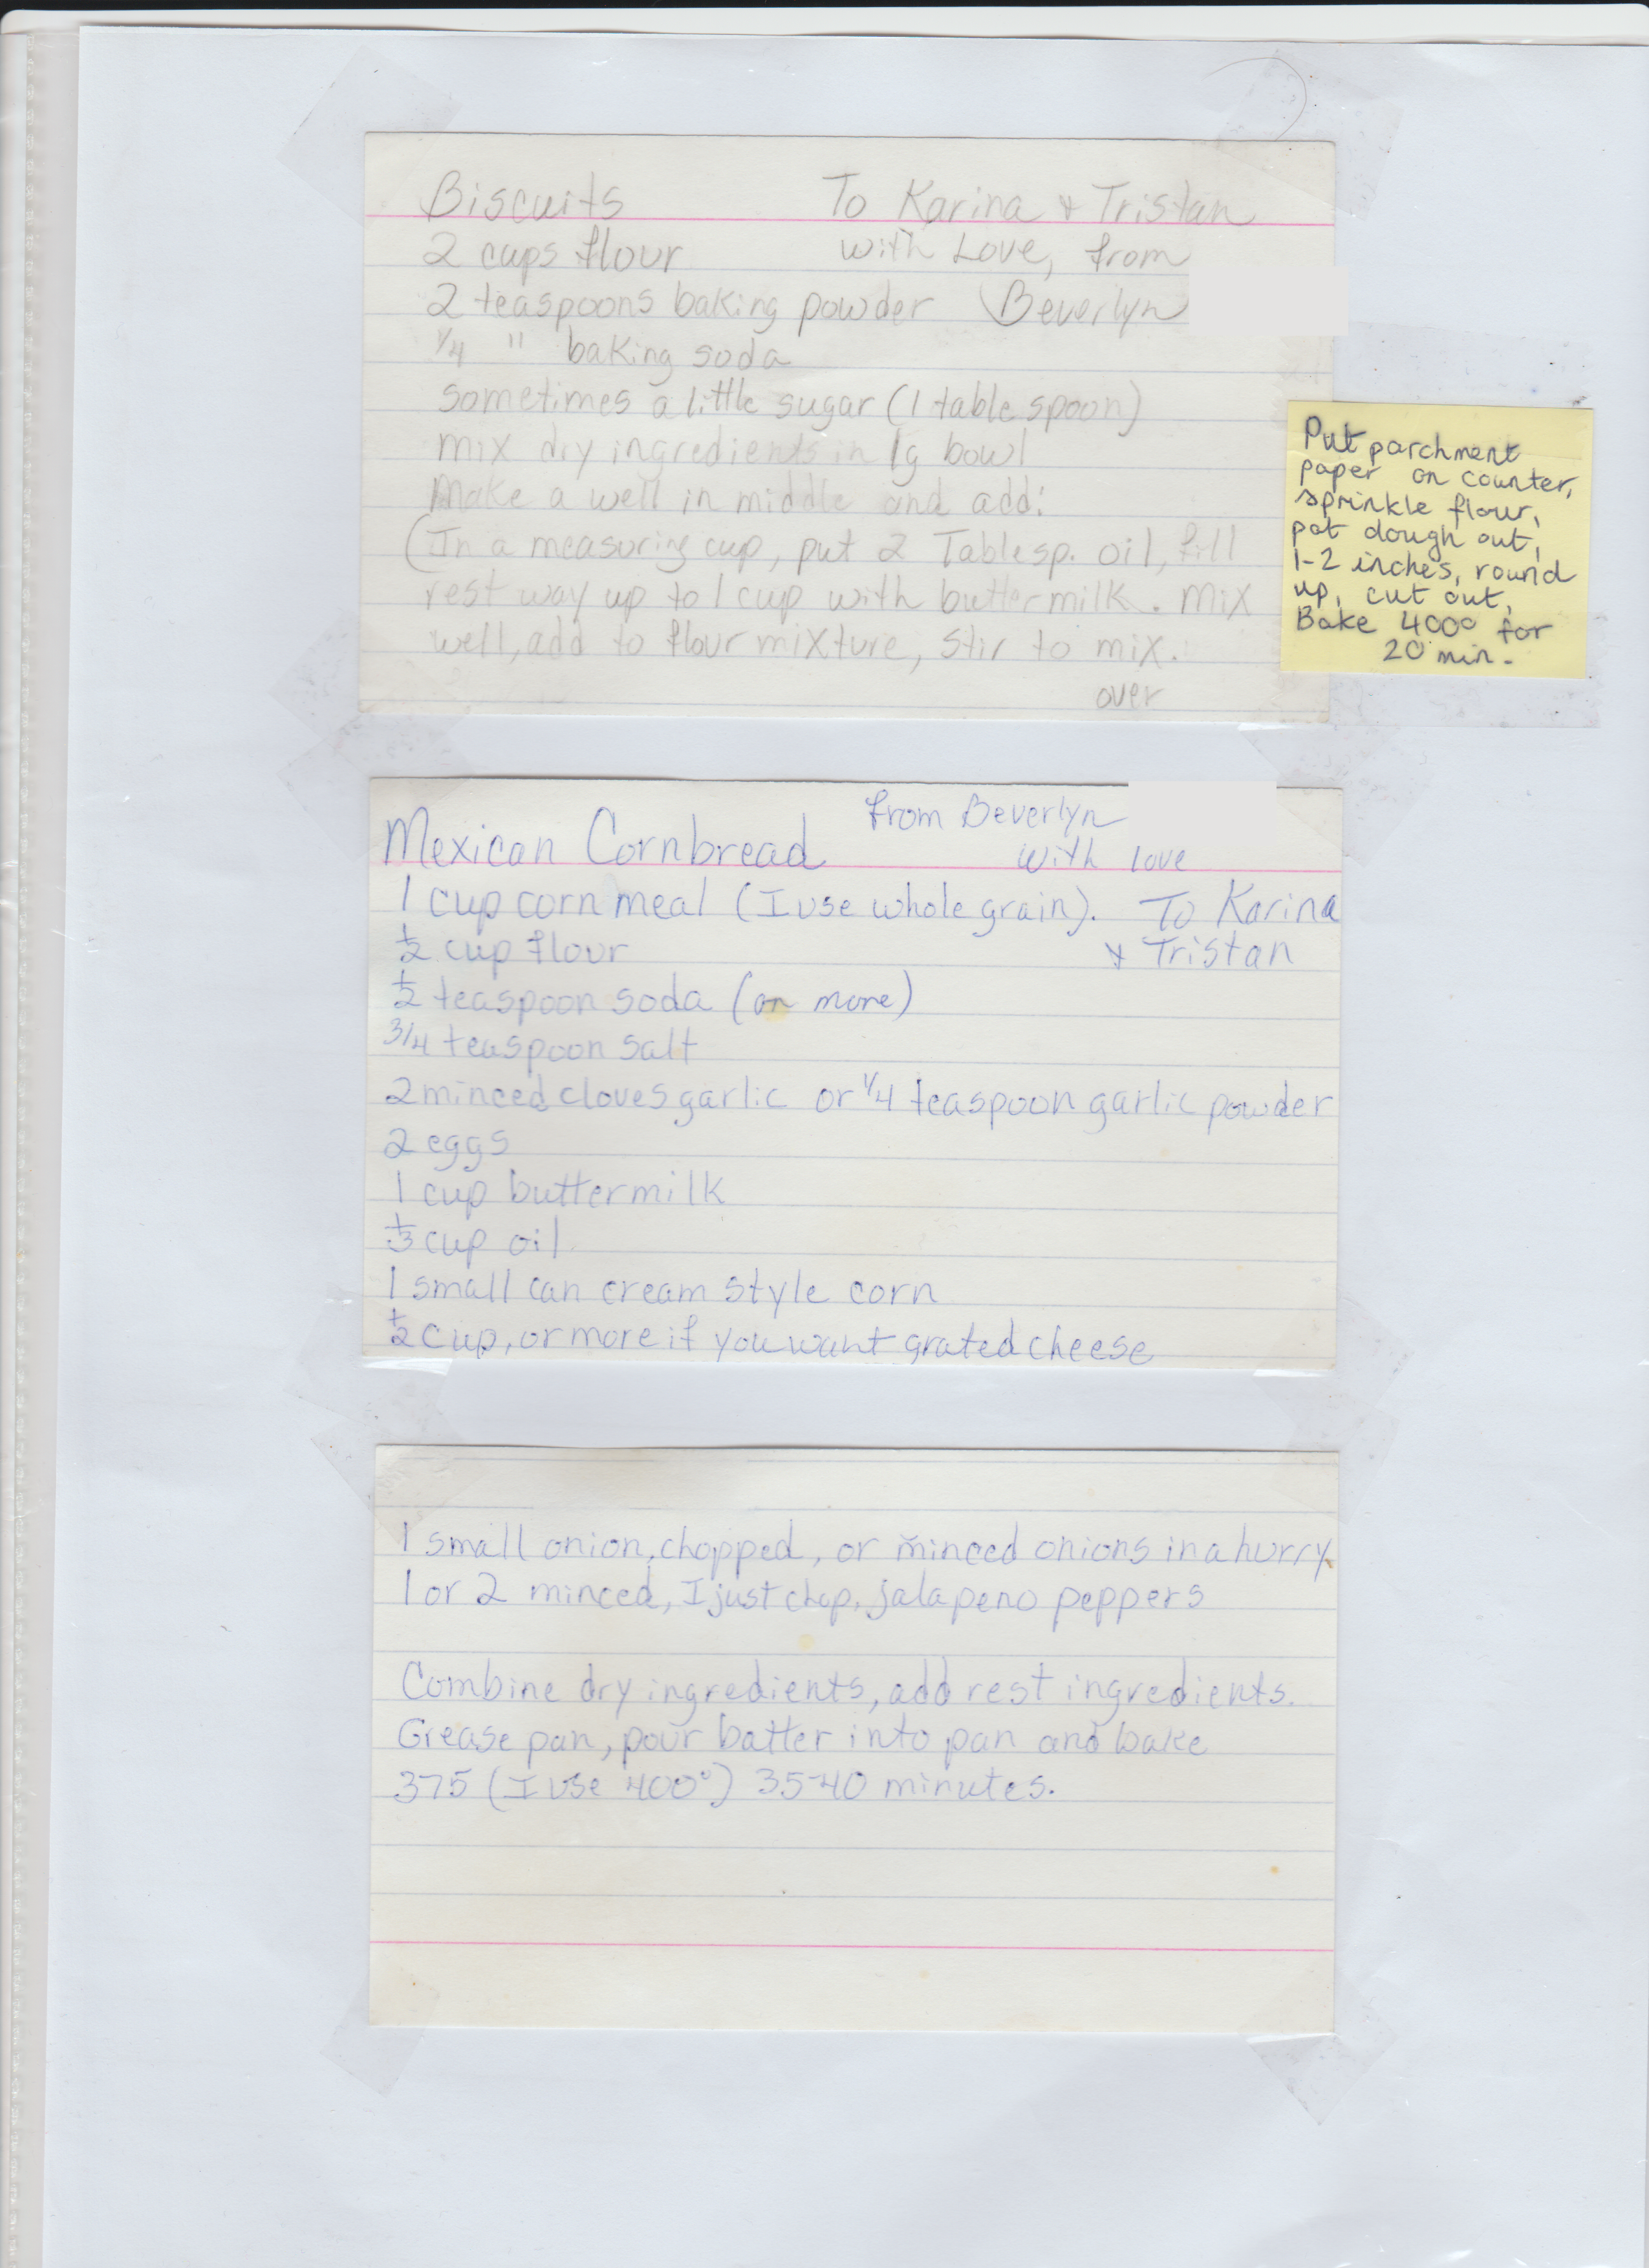 Biscuits To Karina & Tristan
2 cups flour with Love, from
2 teaspoons baking powder Beverlyn
1/4 " baking soda
sometimes a little sugar (1 tablespoon)
mix dry ingredients in lg bowl
Make a well in middle and add:
(In a measuring cup, put 2 Tablesp. oil, fill
rest way up to 1 cup with buttermilk. Mix
well, add to flour mixture, stir to mix.
over
Put parchment
paper on counter,
sprinkle flour,
pat dough out,
1-2 inches, round
up, cut out,
Bake 400° for
20 min.
from Beverlyn
Mexican Cornbread with love
1 cup corn meal (I use whole grain). To Karina
1/2 cup flour & Tristan
1/2 teaspoon soda (or more)
3/4 teaspoon salt
2 minced cloves garlic or 1/4 teaspoon garlic powder
2 eggs
1 cup buttermilk
1/3 cup oil
1 small can cream style corn
1/2 cup, or more if you want grated cheese
1 small onion, chopped, or minced onions in a hurry
1 or 2 minced, I just chop, jalapeno peppers
Combine dry ingredients, add rest ingredients.
Grease pan, pour batter into pan and bake
375 (I use 400°) 35-40 minutes.